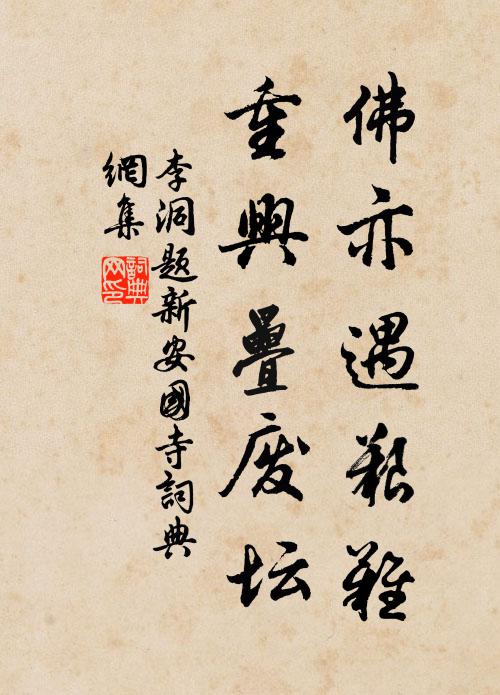 佛亦遇艱難
重興疊廢坛
李洞题新安國寺詞典
網集
詞典
网印